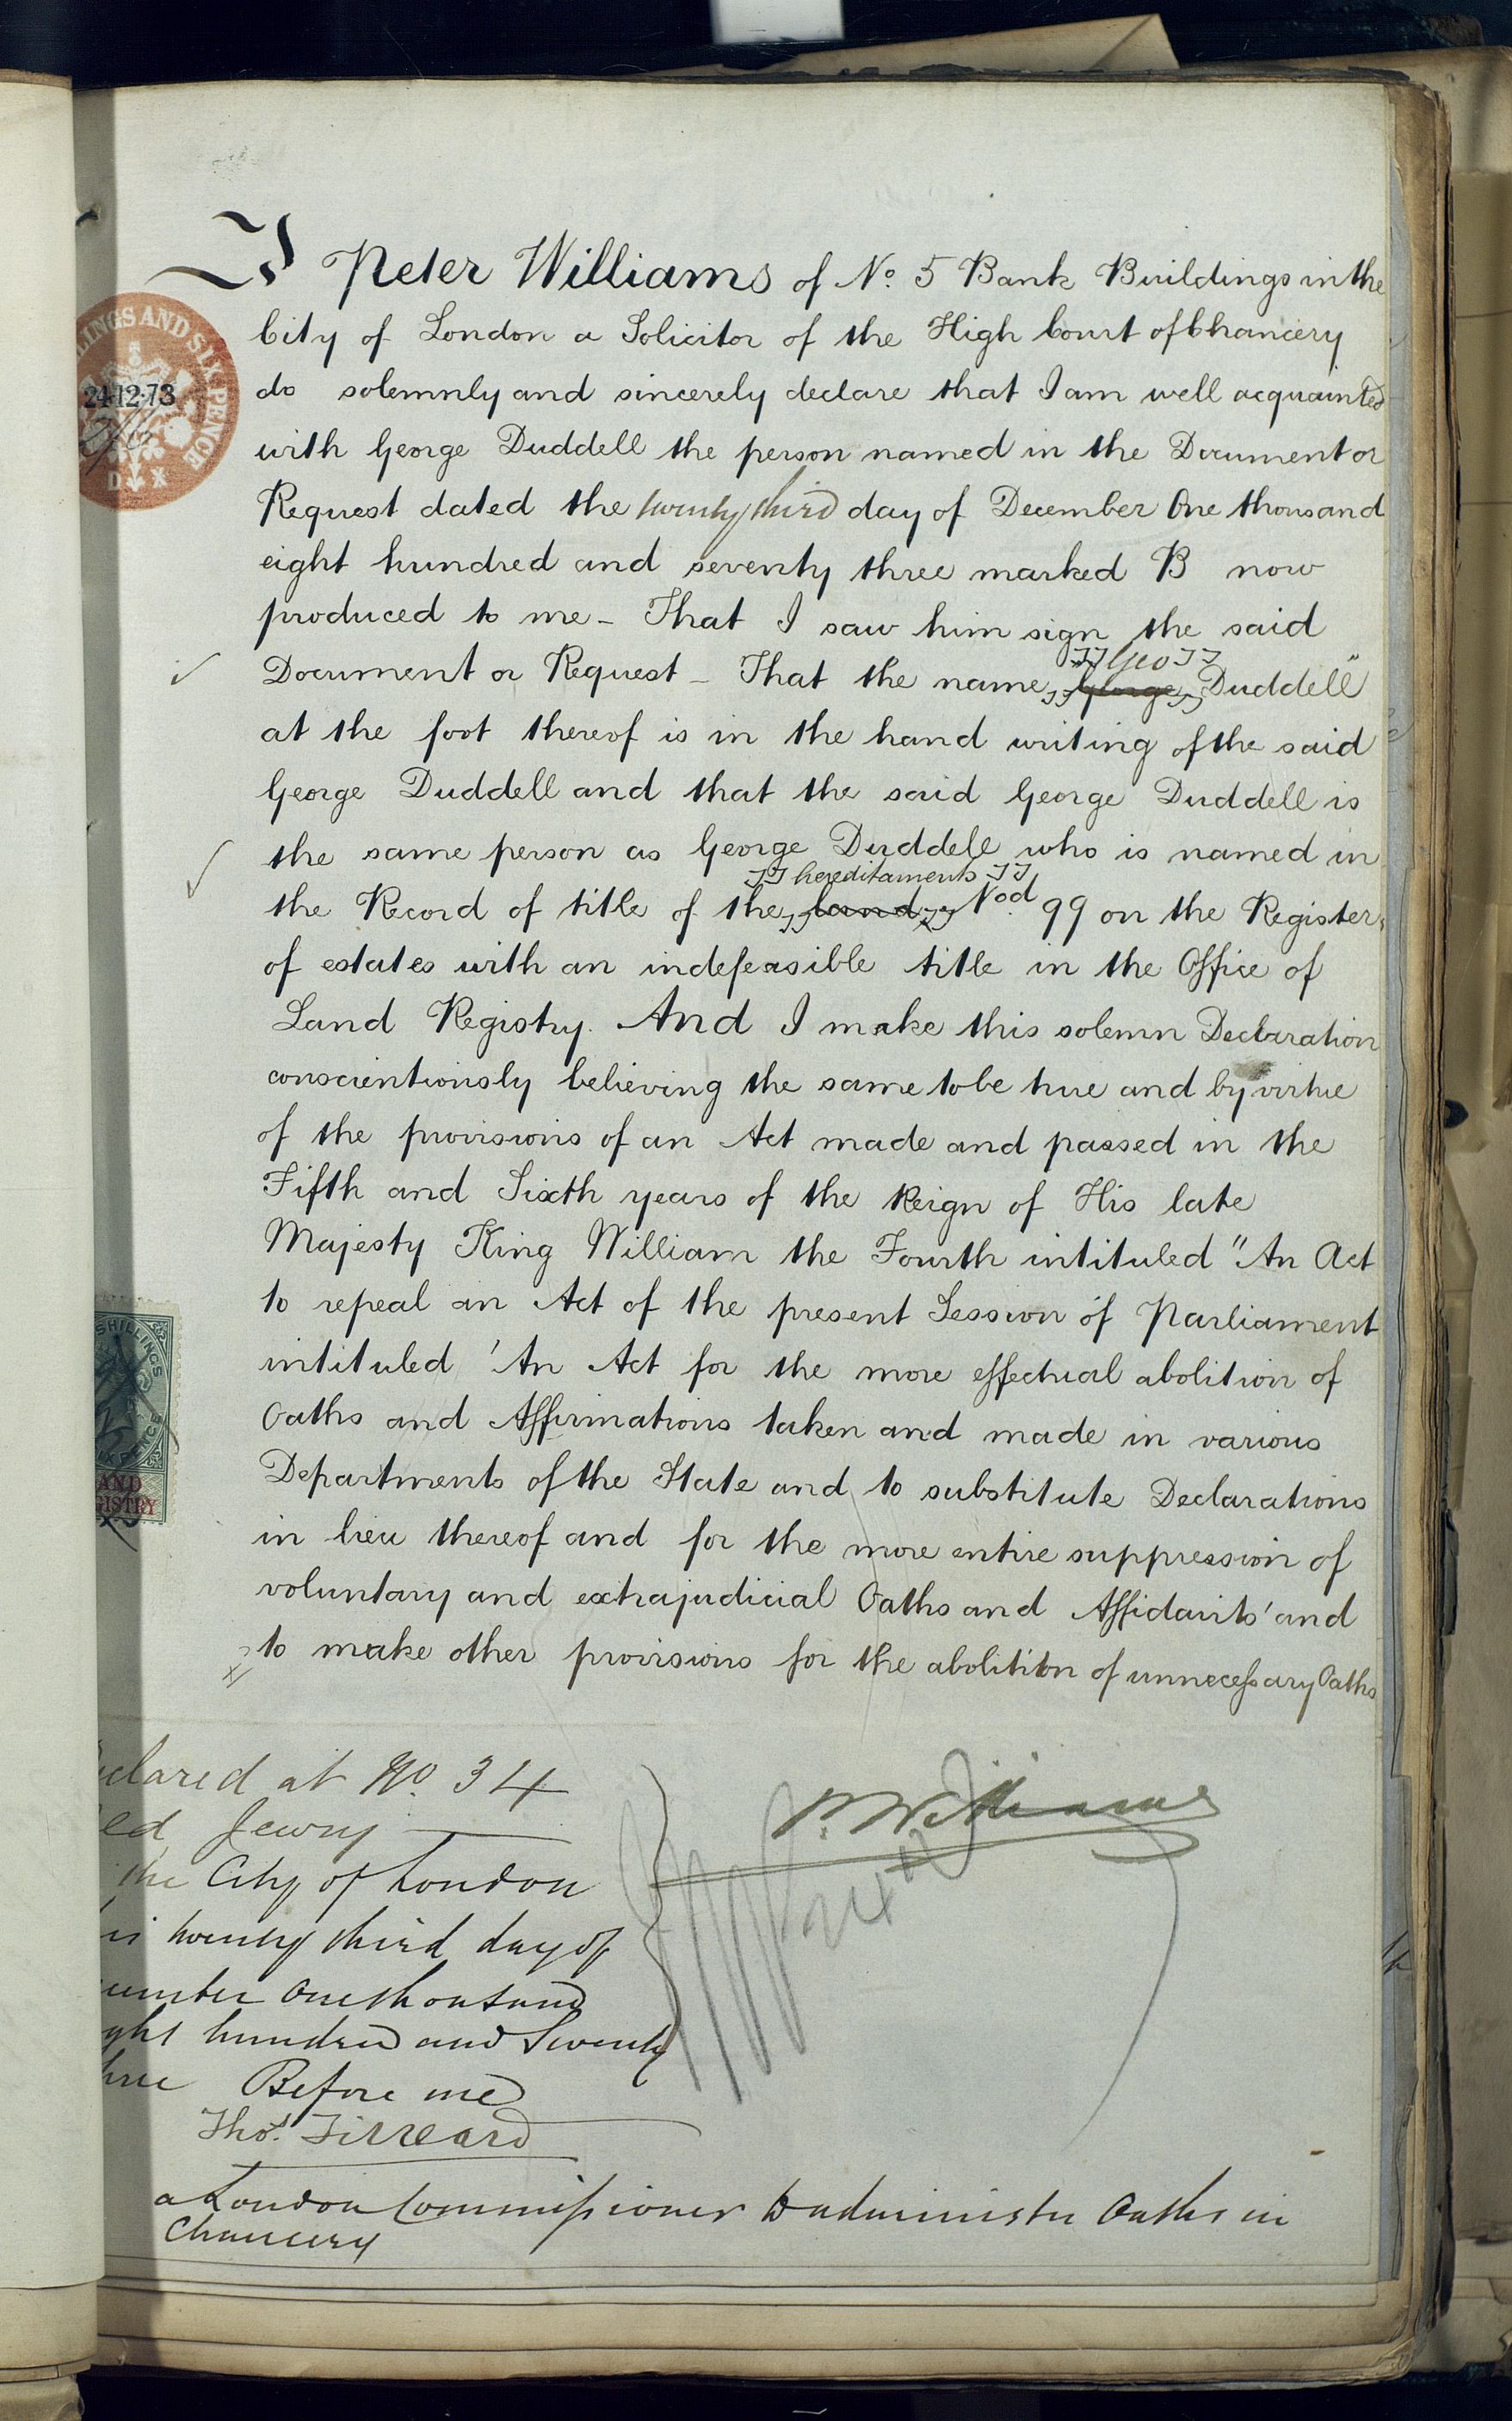 I Peter Williams of No. 5 Bank Buildings in the
City of London a Solicitor of the High Court of Chancery
do solemnly and sincerely declare that I am well acquainted
with George Duddell the person named in the Document or
Request dated the twenty third day of December One thousand
eight hundred and seventy three marked B now
produced to me - That I saw him sign the said
Geo
Document or Request - That the name "George Duddell"
at the foot thereof is in the hand writing of the said
George Duddell and that the said George Duddell is
the same person as George Duddell who is named in
hereditaments
the Record of title of the land Nod 99 on the Register
of estates with an indefeasible title in the Office of
Land Registry. And I make this solemn Declaration
conscientiously believing the same to be true and by virtue
of the provisions of an Act made and passed in the
Fifth and Sixth years of the Reign of His late
Majesty King William the Fourth intituled "An Act
to repeal an Act of the present Session of Parliament
intituled 'An Act for the more effectual abolition of
Oaths and Affirmations taken and made in various
Departments of the State and to substitute Declarations
in lieu thereof and for the more entire suppression of
voluntary and extrajudicial Oaths and Affidavits' and
to make other provisions for the abolition of unnecessary Oaths
LINGS AND SIX PENCE
5
24·12·73
D X
SHILLINGS
SIX PENCE
AND
GISTRY
clared at No. 34
ed Jewry
the City of London
is twenty third day of
ember One thousand
ght hundred and Seventy
hree Before me
Thos.
a London Commissioner to administer Oaths in
Chancery
P. Williams
24